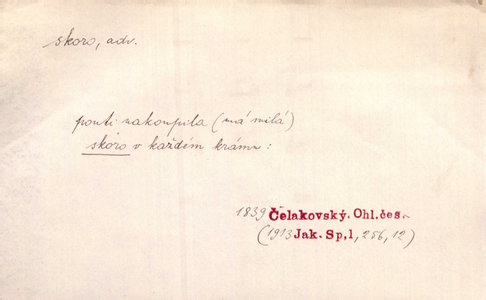 skoro, adv.
pouti nakoupila (má milá)
skoro v každém krámu:
1839 Čelakovský. Ohl.čes.
(1913 Jak. Sp,1, 256, 12)